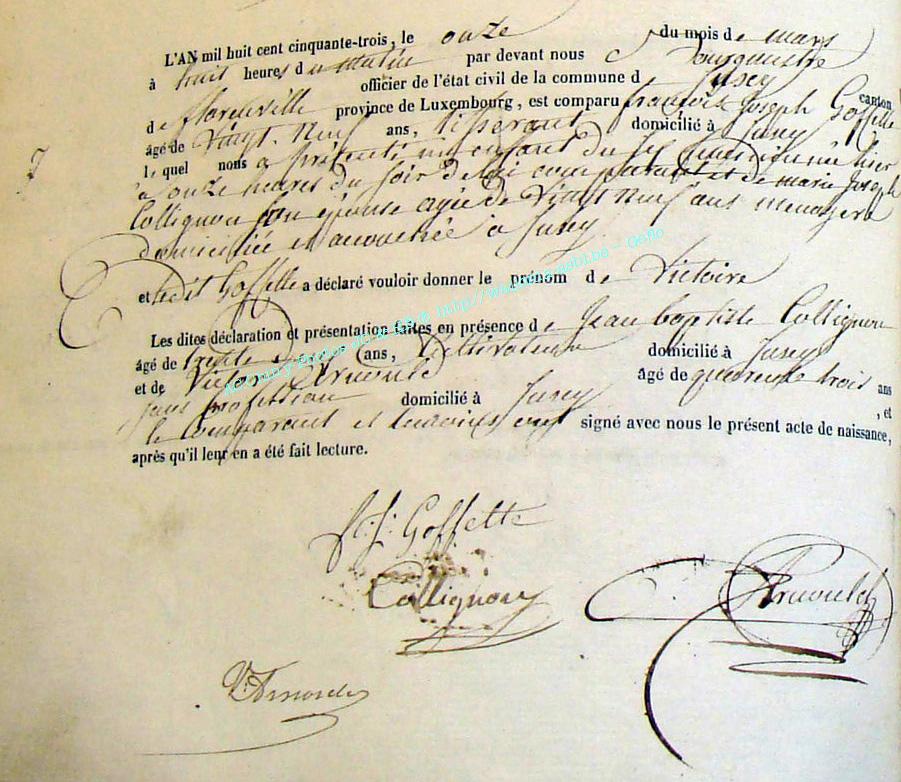 L'AN mil huit cent cinquante-trois, le onze du mois de mars
à huit heures du matin par devant nous Bourgmestre
officier de l'état civil de la commune de Jusey canton
de florenville province de Luxembourg, est comparu françois Joseph Goffette
âgé de vingt-neuf ans, tisserant domicilié à Jusey
lequel nous a présenté un enfant du sex masculin né hier
à onze heures du soir de lui comparant et de marie Joseph
Collignon son épouse agée de vingt neuf ans menagère
domiciliée et accouchée à Jusey
et ledit Goffette a déclaré vouloir donner le prénom de Victoire
Les dites déclaration et présentation faites en présence de Jean baptiste Collignon
âgé de trente ans, Cultivateur domicilié à Jusey
et de Arnould âgé de quarente trois ans
sans profession domicilié à Jusey , et
le comparant et temoins ont signé avec nous le présent acte de naissance,
après qu'il leur en a été fait lecture.
f. J. Goffette
Collignon
Arnould
V. Arnould